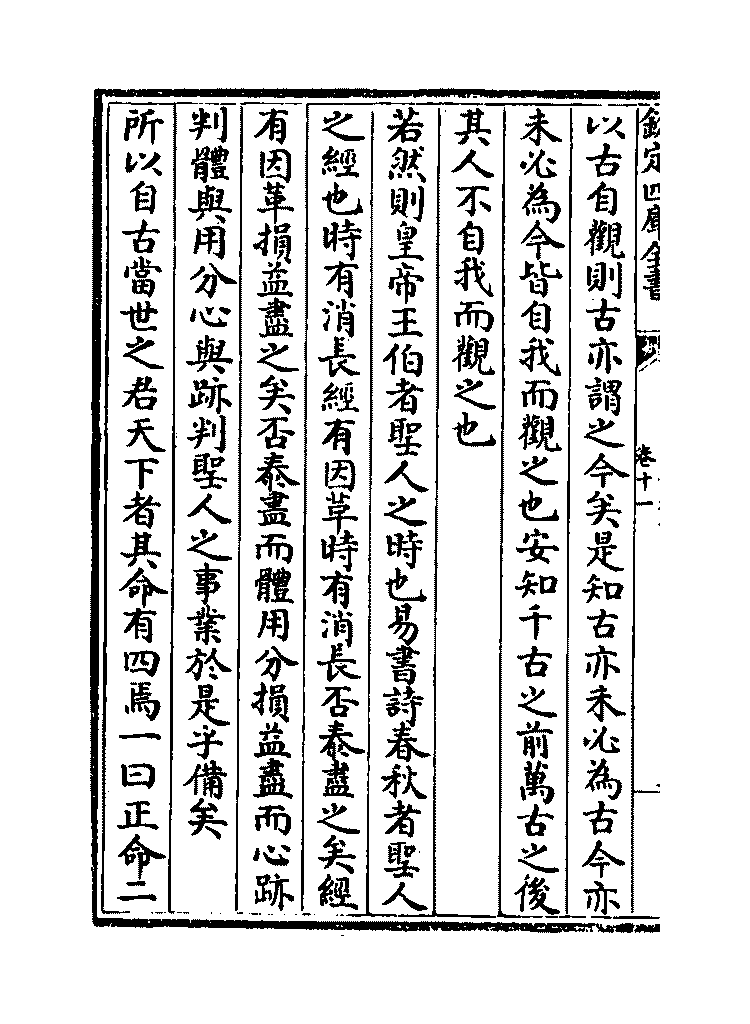 欽定四庫全書
卷十一
以古自觀則古亦謂之今矣是知古亦未必為古今亦
未必為今皆自我而觀之也安知千古之前萬古之後
其人不自我而觀之也
若然則皇帝王伯者聖人之時也易書詩春秋者聖人
之經也時有消長經有因革時有消長否泰盡之矣經
有因革損益盡之矣否泰盡而體用分損益盡而心跡
判體與用分心與跡判聖人之事業於是乎備矣
所以自古當世之君天下者其命有四焉一曰正命二